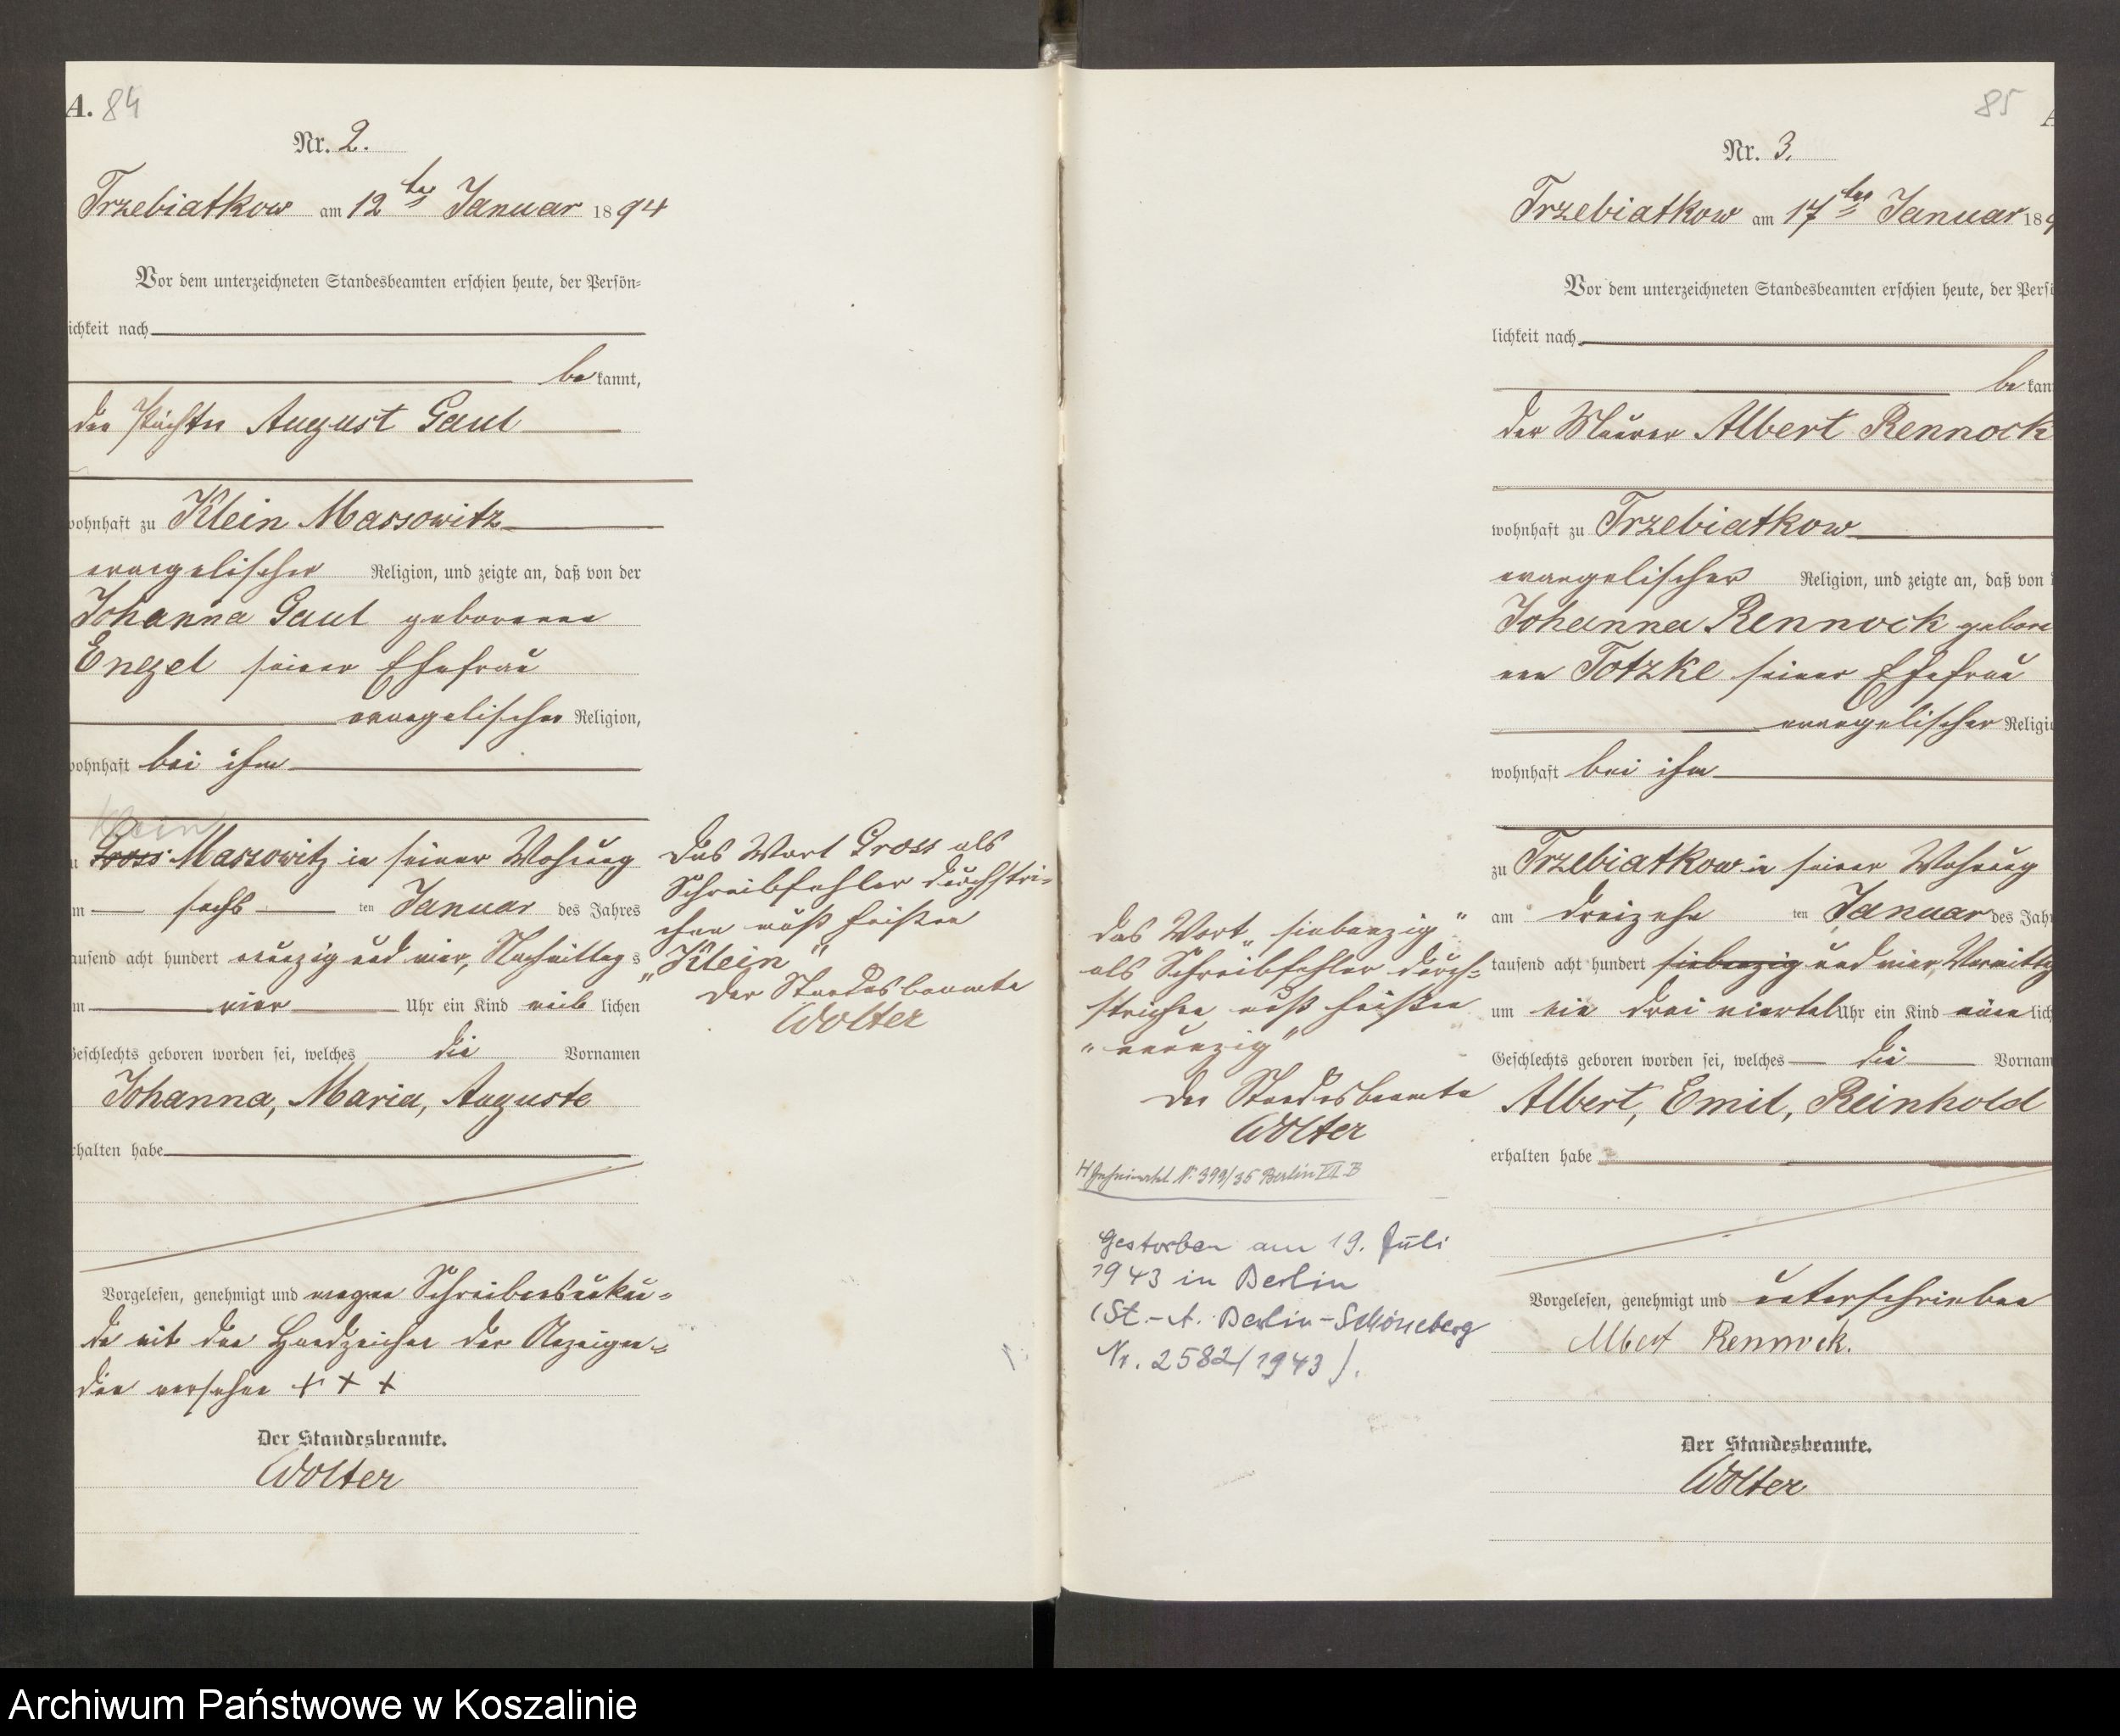 A. 84
Nr. 2.
Trzebiatkow am 12ten Januar 1894
Vor dem unterzeichneten Standesbeamten erschien heute, der Persön-
ichkeit nach
be kannt,
der Pächter August Gaul
wohnhaft zu Klein Massowitz
evangelischer Religion, und zeigte an, daß von der
Johanna Gaul geborenen
Engel seiner Ehefrau
evangelischer Religion,
wohnhaft bei ihm
Klein
Gross Massowitz in seiner Wohnung
m sechs ten Januar des Jahres
ausend acht hundert neunzig und vier, Nachmittag s
m vier Uhr ein Kind weib lichen
Geschlechts geboren worden sei, welches die Vornamen
Johanna, Maria, Auguste
rhalten habe
Vorgelesen, genehmigt und wegen Schreibensunkun-
de mit den Handzeichen des Anzeigen-
den versehen + + +
Der Standesbeamte.
Wolter
Das Wort Gross als
Schreibfehler durchstri-
chen muß heißen
"Klein"
Der Standesbeamte
Wolter
85
Nr. 3.
Trzebiatkow am 17ten Januar 189
Vor dem unterzeichneten Standesbeamten erschien heute, der Persö
lichkeit nach
be kan
der Maurer Albert Rennock
wohnhaft zu Trzebiatkow
evangelischer Religion, und zeigte an, daß von
Johanna Rennock gebore
nen Totzke seiner Ehefrau
evangelischer Religi
wohnhaft bei ihm
zu Trzebiatkow in seiner Wohnung
am dreizehn ten Januar des Jah
tausend acht hundert siebenzig und vier, Vormittag
um ein drei viertel Uhr ein Kind männ lich
Geschlechts geboren worden sei, welches die Vornam
Albert, Emil, Reinhold
erhalten habe
Vorgelesen, genehmigt und unterschrieben
Albert Rennock.
Der Standesbeamte.
Wolter
Das Wort "siebenzig"
als Schreibfehler durch-
strichen muß heißen
"neunzig"
Der Standesbeamte
Wolter
N. 399/35 Berlin VII B
Gestorben am 19. Juli
1943 in Berlin
(St.-A. Berlin-Schöneberg
Nr. 2582/1943).
Archiwum Państwowe w Koszalinie